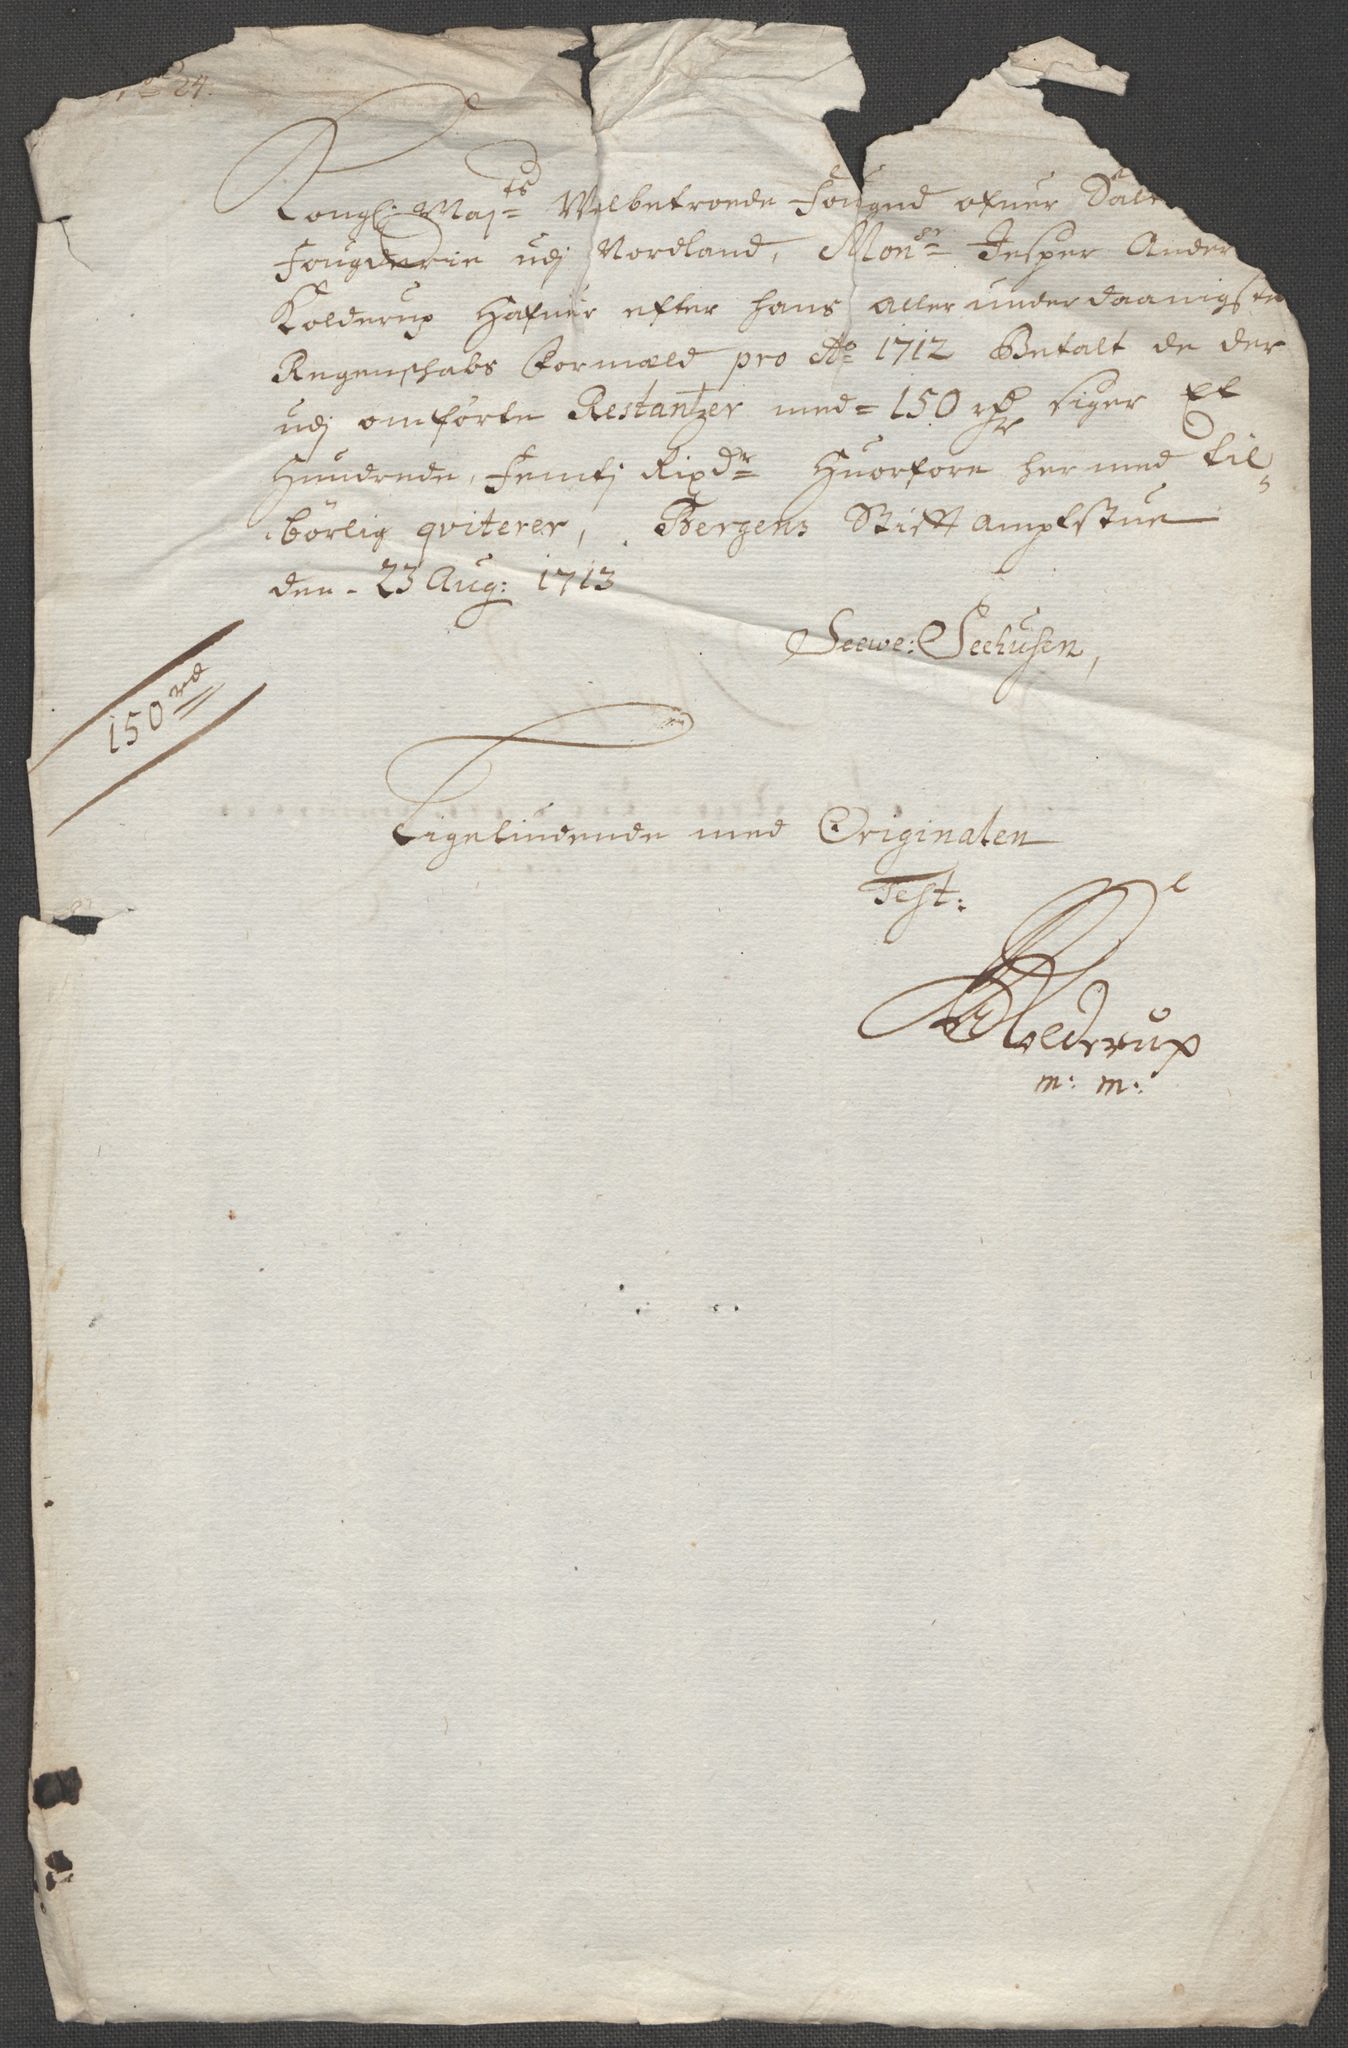 24.
Kongl: Maj:ts Velbetroede Fouged ofuer Salt
Fougderie udj Nordland, Mon:sr Jesper Ander
Kolderup Hafuer efter hans allerunderdaanigste
Regenschabs Formæld pro Ao 1712 Betalt de der
udj omførte Restantzer med= 150 rdr siger Et
Hundrede, Femtj Rixdr Huorfore her med til=
børlig qviterer, Bergens Stifft Amptstue
den - 23 Aug: 1713
Seewe: Seehusen,
150 rd
Ligelindende med Originalen
Test:
Kolderup
m: m: